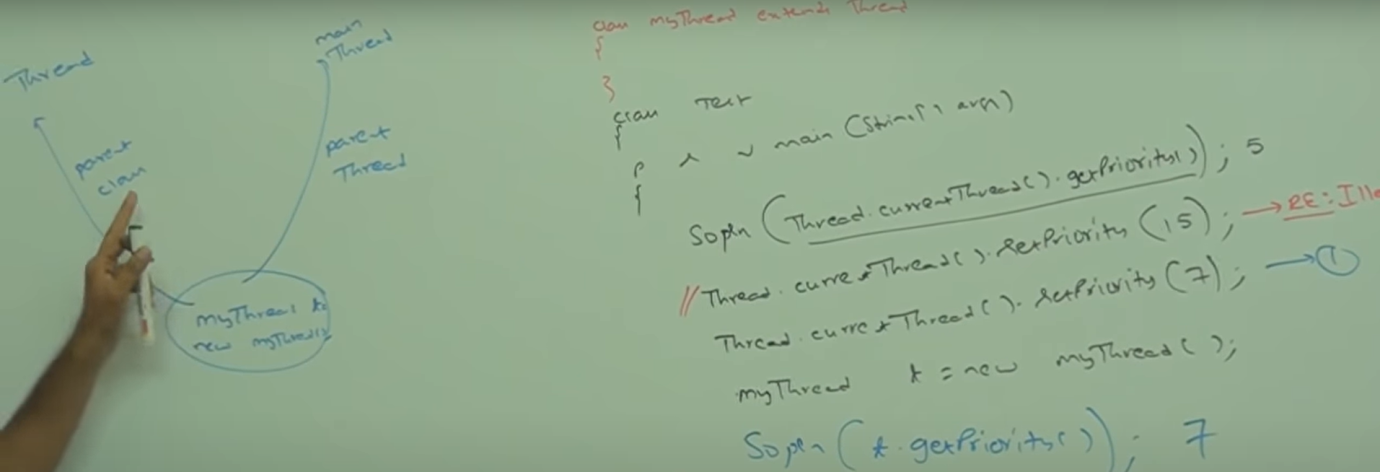 Thread
parent
class
main
Thread
parent
Thread
myThread t=
new myThread();
class myThread extends Thread
{
}
class Test
{
p s v main (String[] args)
{
Sopln (Thread.currentThread().getPriority()); 5
// Thread.currentThread().setPriority(15); → RE: Ille
Thread.currentThread().setPriority(7); → ①
myThread t = new myThread();
Sopln (t.getPriority()); 7